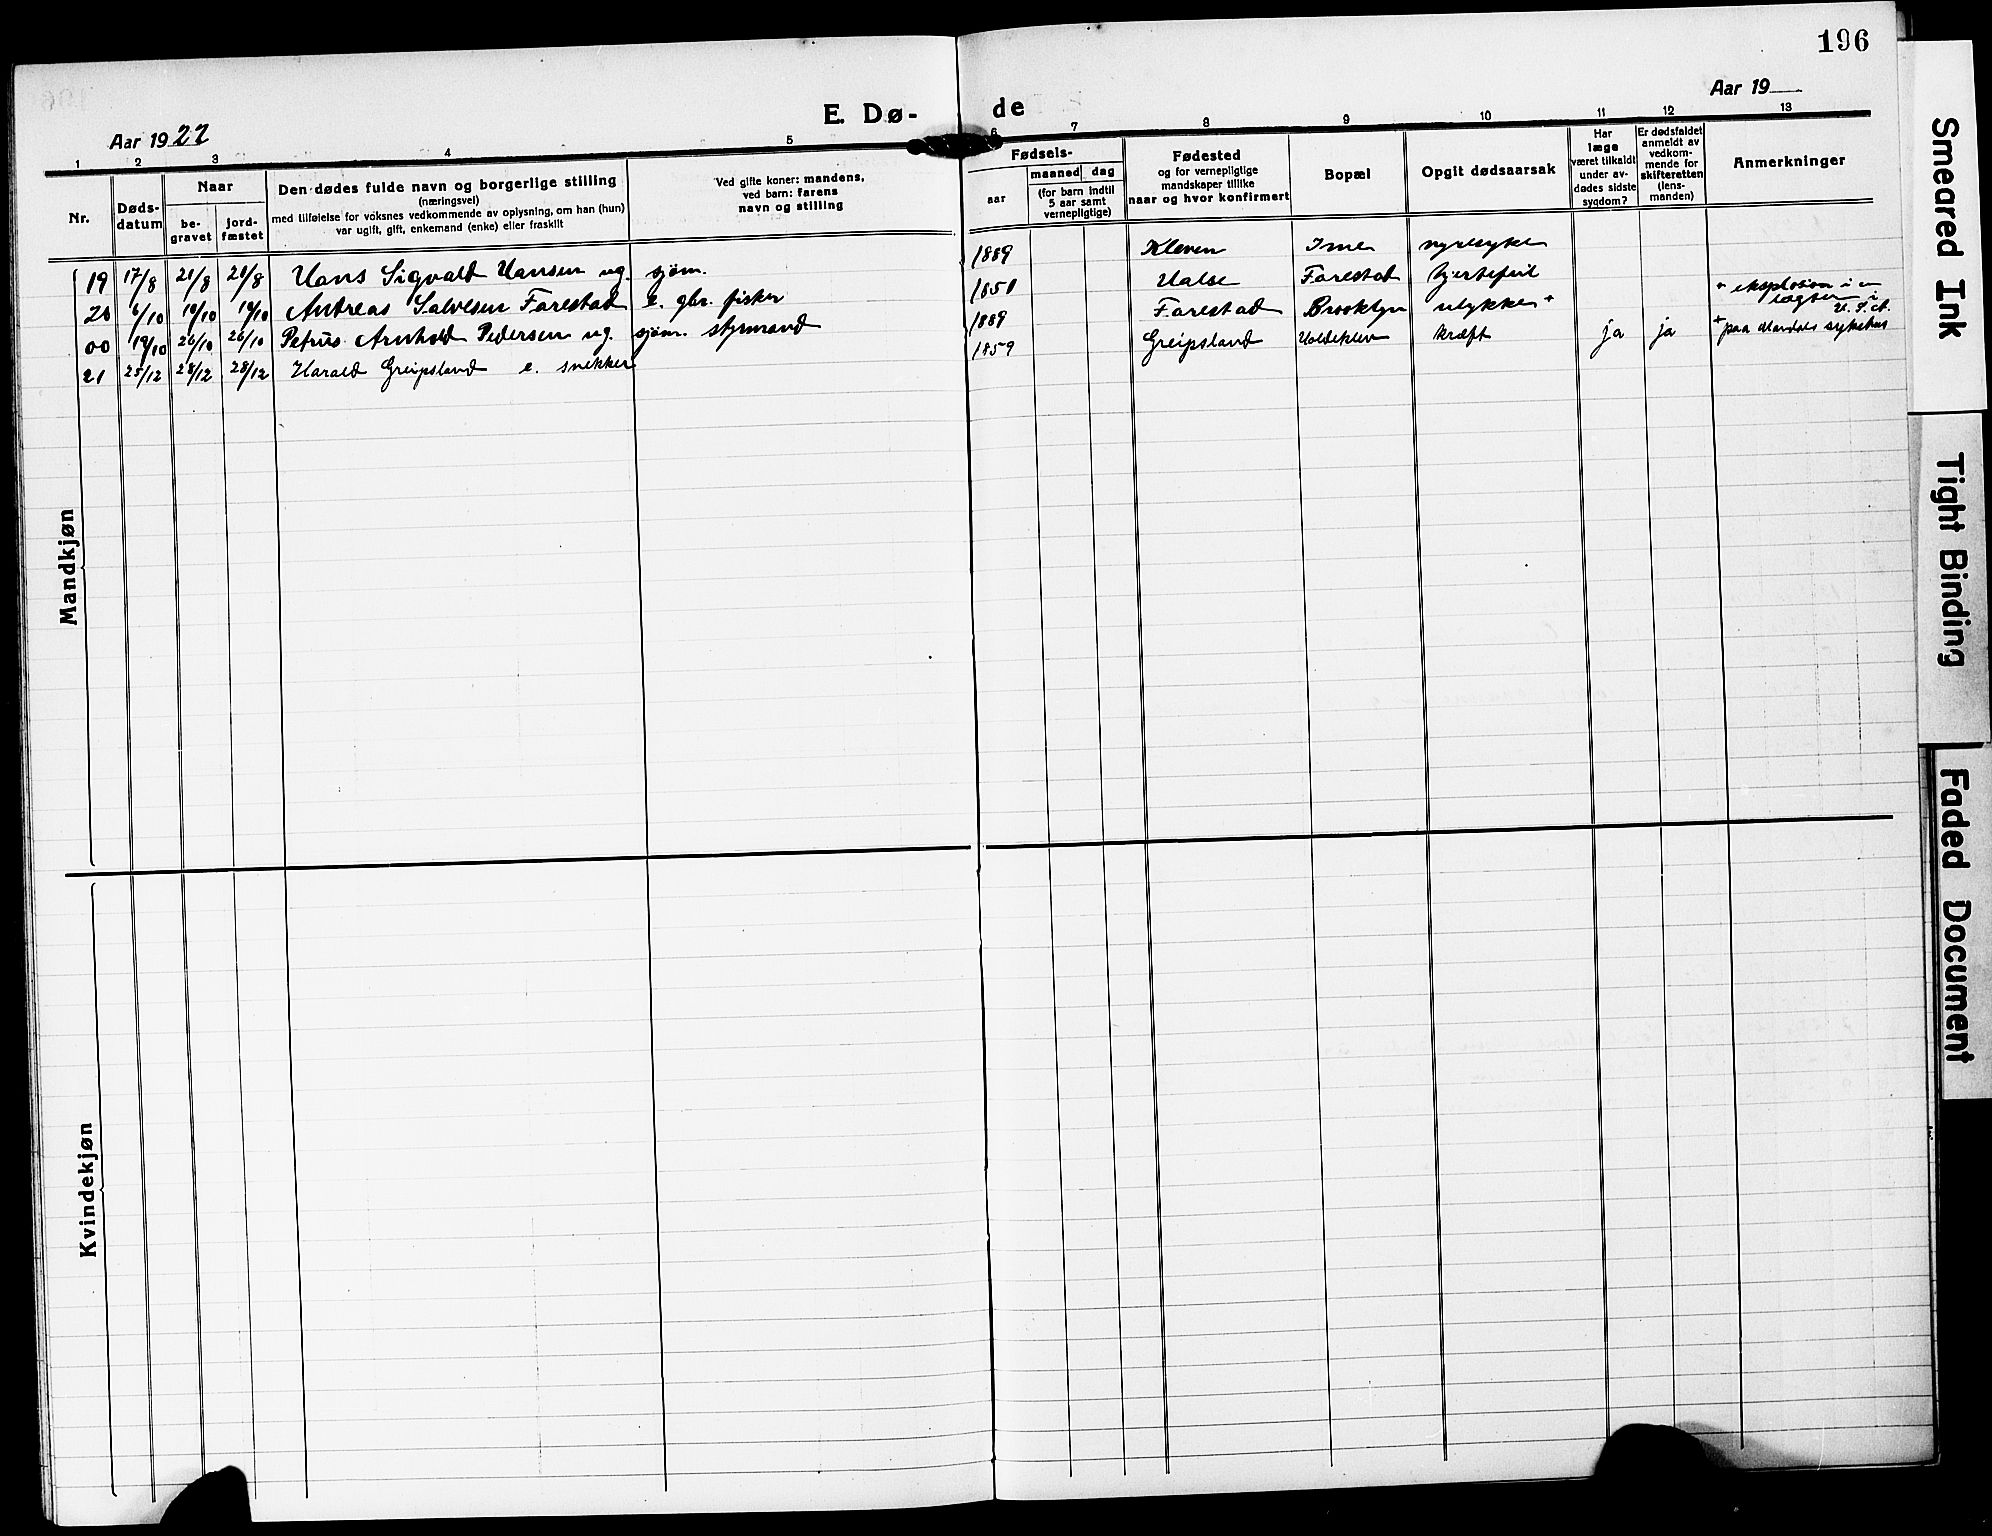 196
E. Dø-
de
Aar 1922
Aar 19
1 2 3 4 5 6 7 8 9 10 11 12 13
Nr.
Døds-
datum
Naar
be-
gravet
jord-
fæstet
Den dødes fulde navn og borgerlige stilling
(næringsvei)
med tilføielse for voksnes vedkommende av oplysning, om han (hun)
var ugift, gift, enkemand (enke) eller fraskilt
Ved gifte koner: mandens,
ved barn: farens
navn og stilling
Fødsels-
aar
maaned dag
(for barn indtil
5 aar samt
vernepligtige)
Fødested
og for vernepligtige
mandskaper tillike
naar og hvor konfirmert
Bopæl
Opgit dødsaarsak
Har
læge
været tilkaldt
under av-
dødes sidste
sygdom?
Er dødsfaldet
anmeldt av
vedkom-
mende for
skifteretten
(lens-
manden)
Anmerkninger
Mandkjøn
19 17/8 21/8 21/8 Hans Sigvald Hansen ug. sjøm. 1889 Kleven Ime nyresyke
20 6/10 10/10 10/10 Andreas Salvesen Farestad e. gbr. fisker 1851 Halse Farestad hjertefeil
00 19/10 26/10 26/10 Petrus Arnhold Pedersen ug. sjøm. styrmand 1889 Farestad Brooklyn ulykke + + eksplosion i en
U. S. A.
21 25/12 28/12 28/12 Harald Greipsland e. snekker 1859 Greipsland kræft ja ja + paa Mandals sykehus
Kvindekjøn
Smeared Ink
Tight Binding
Faded Document